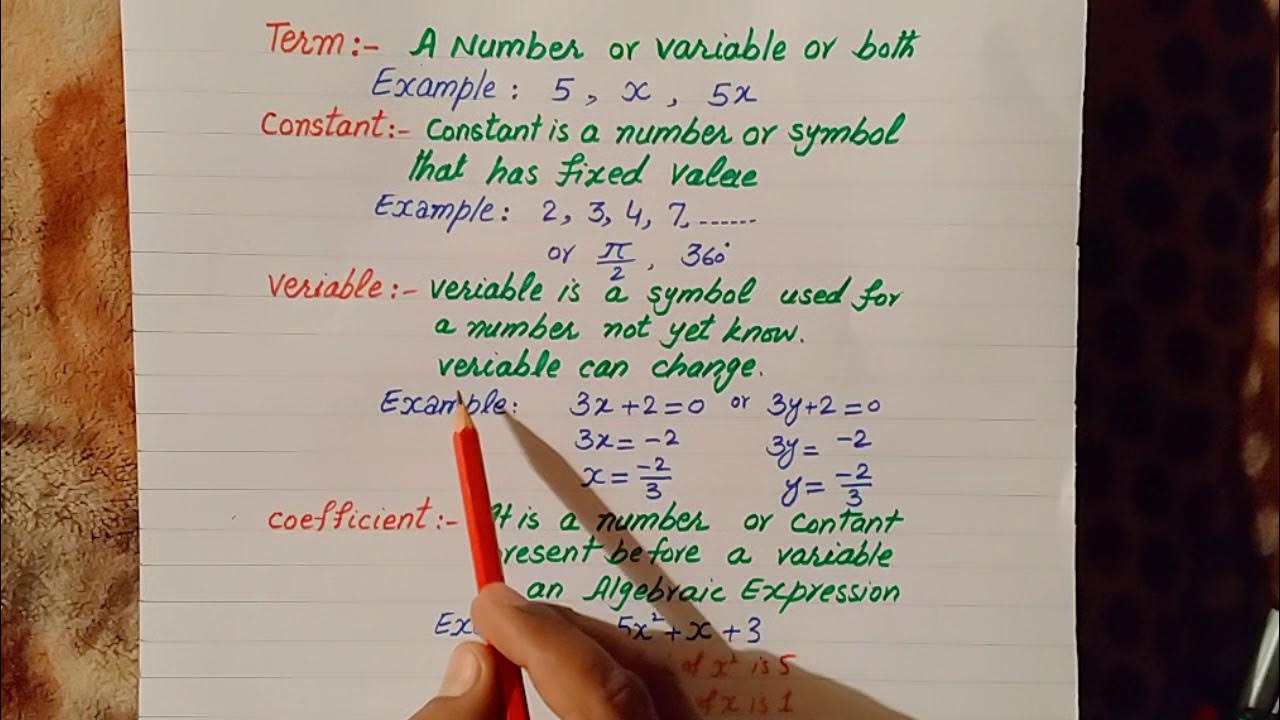 Term:- A Number or variable or both
Example: 5, x, 5x
Constant:- Constant is a number or symbol
that has fixed value
Example: 2, 3, 4, 7, ......
or π/2, 360°
Veriable:- veriable is a symbol used for
a number not yet know.
veriable can change.
Example: 3x+2=0 or 3y+2=0
3x= -2 3y= -2
x= -2/3 y= -2/3
coefficient:- It is a number or contant
resent before a variable
an Algebraic Expression
Ex 5x²+x+3
of x² is 5
of x is 1